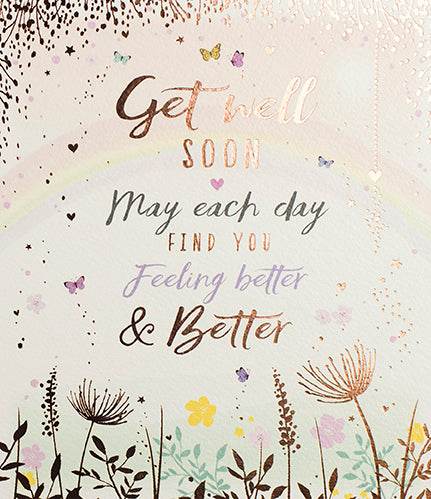 Get well
SOON
May each day
FIND YOU
Feeling better
& Better